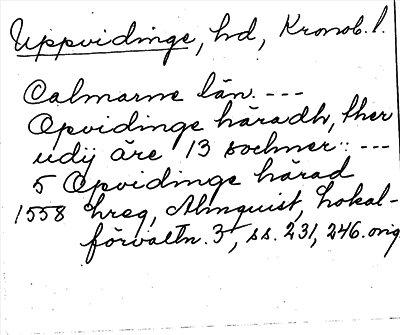 Uppvidinge, hd, Kronob. l.
Calmarne län. ---
Opvidinge häradh, ther
udij äre 13 sochner: ---
5 Opvidinge härad
1558 hreg, Almquist, Lokal-
förvaltn. 3, ss. 231, 246. orig